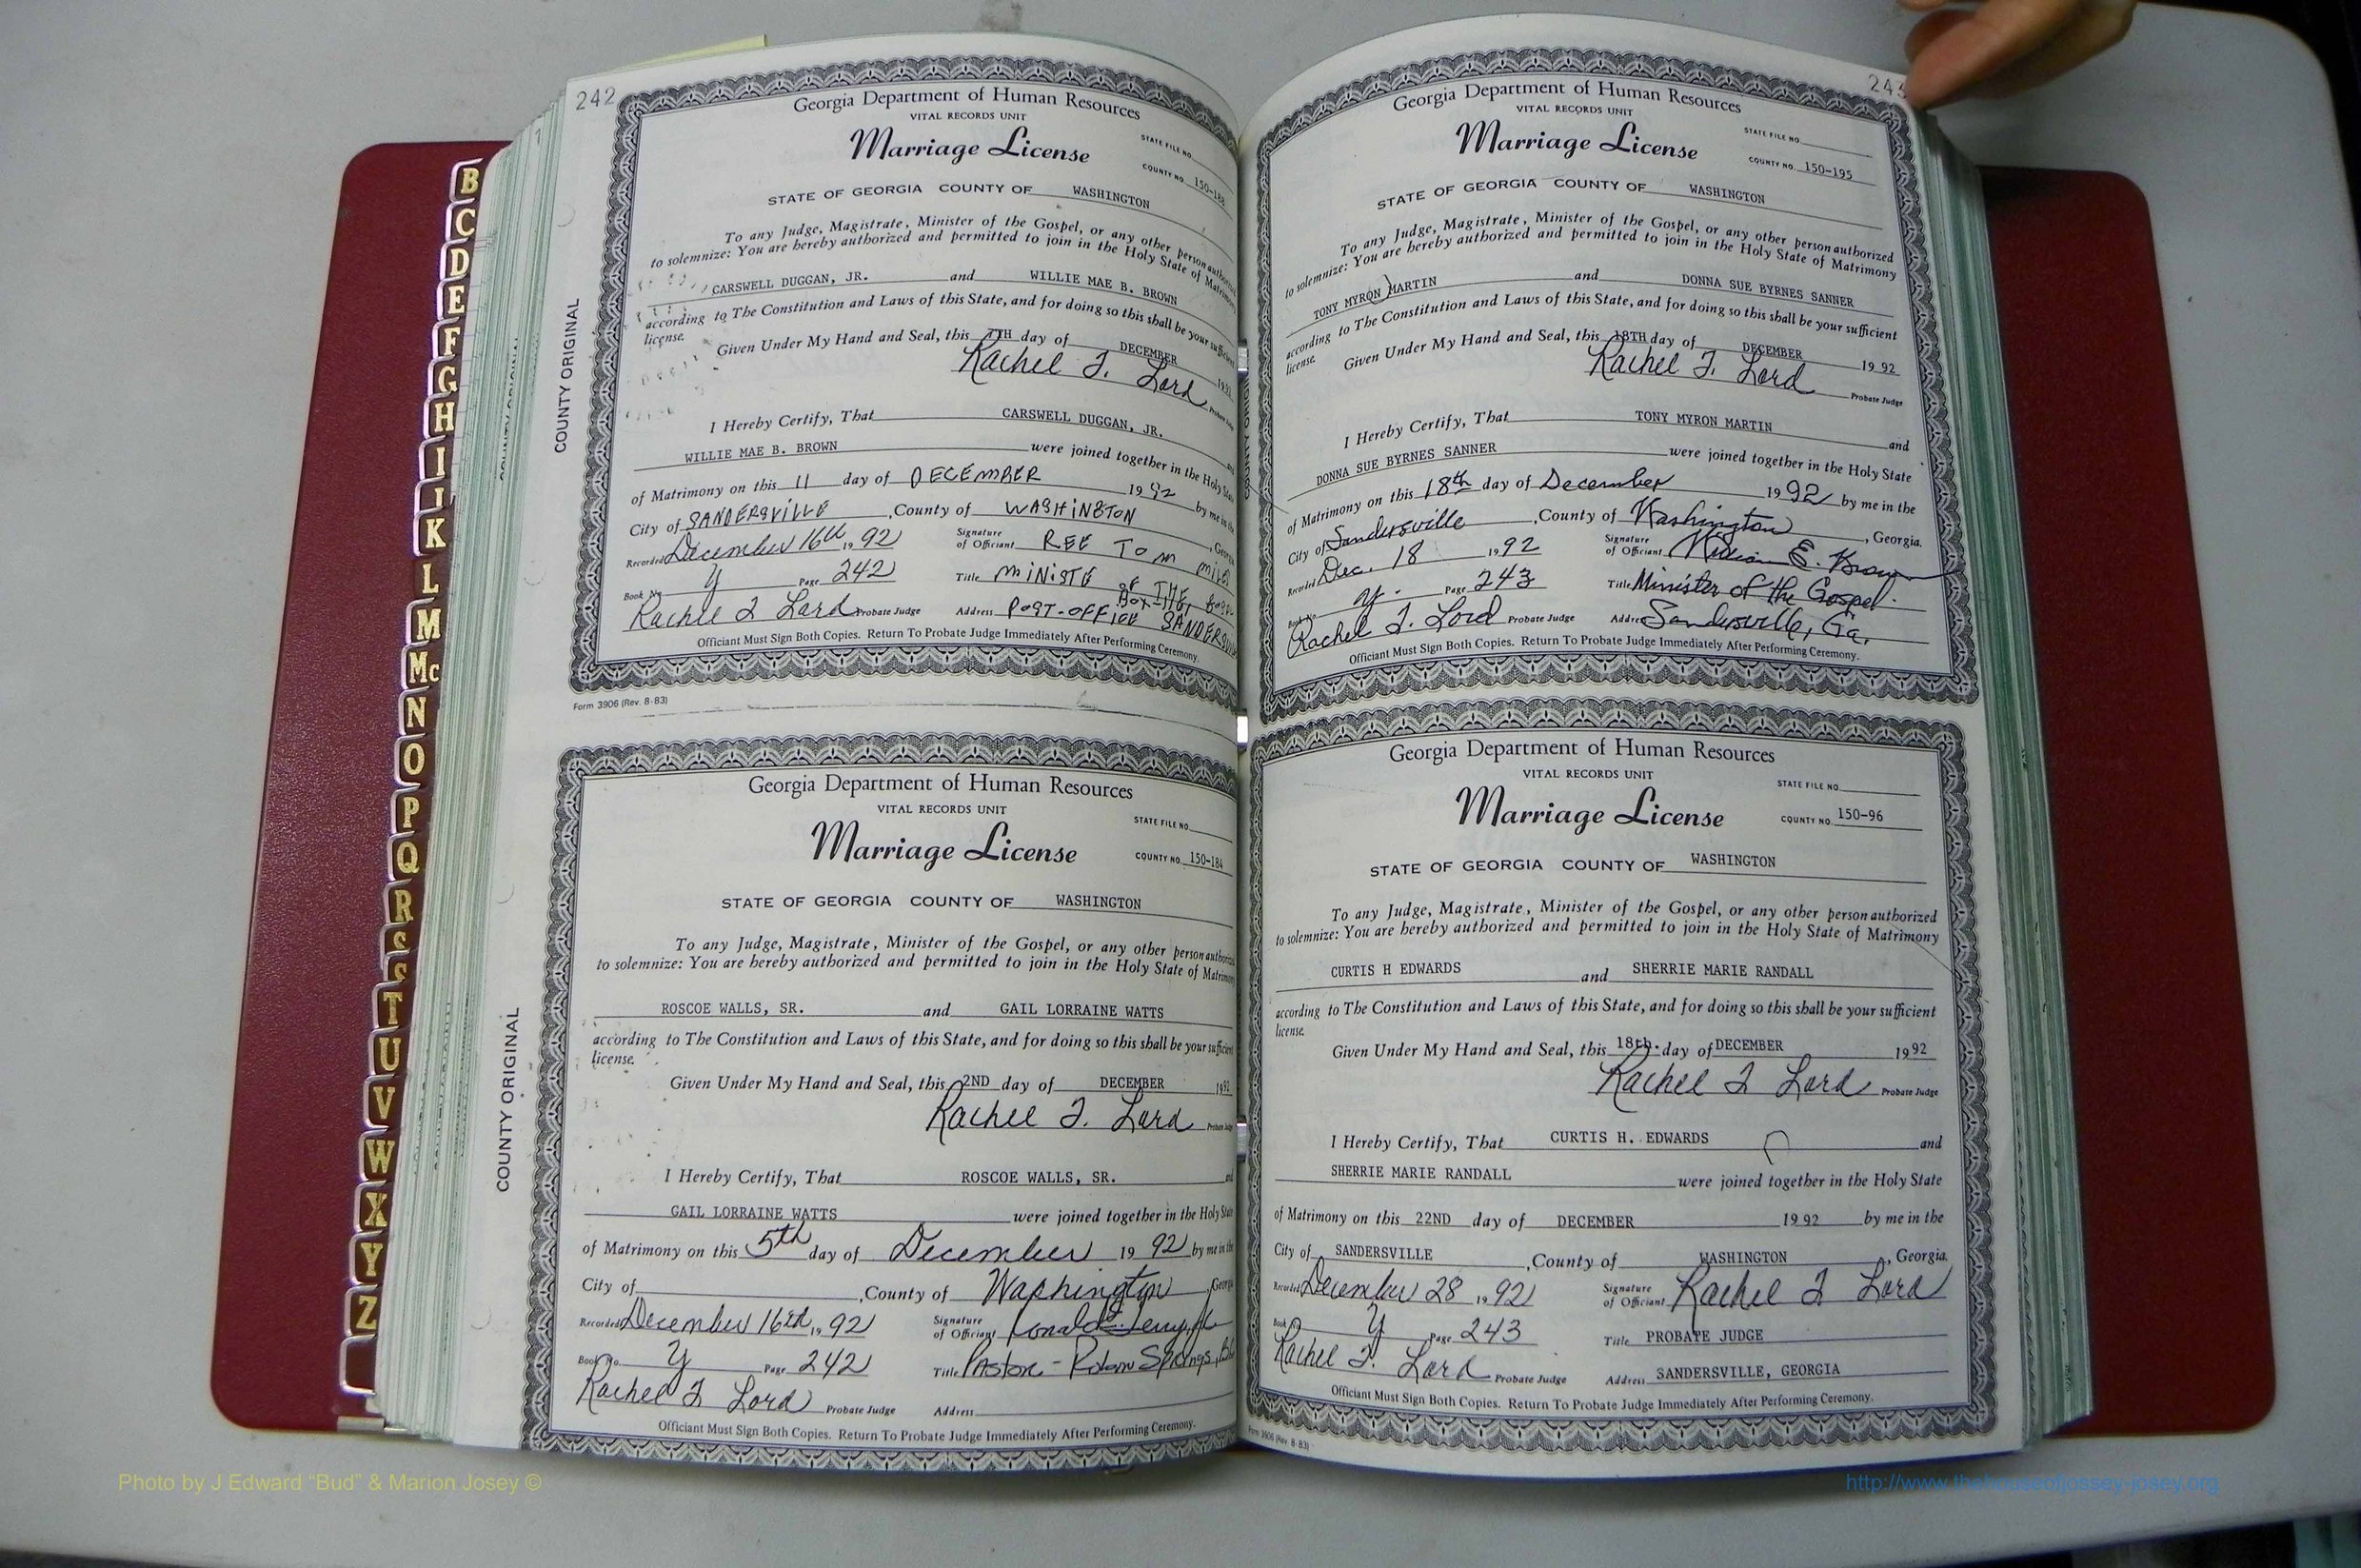 B
C
D
E
F
G
H
I
K
L
M
Mc
N
O
P
Q
R
S
T
U
V
W
X
Y
Z
242
COUNTY ORIGINAL
Georgia Department of Human Resources
VITAL RECORDS UNIT
Marriage License
STATE FILE NO.
COUNTY NO. 150-188
STATE OF GEORGIA COUNTY OF WASHINGTON
To any Judge, Magistrate, Minister of the Gospel, or any other person authorized
to solemnize: You are hereby authorized and permitted to join in the Holy State of Matrimony
CARSWELL DUGGAN, JR. and WILLIE MAE B. BROWN
according to The Constitution and Laws of this State, and for doing so this shall be your sufficient
license.
Given Under My Hand and Seal, this 7TH day of DECEMBER 1992
Rachel T. Lord Probate Judge
I Hereby Certify, That CARSWELL DUGGAN, JR. and
WILLIE MAE B. BROWN were joined together in the Holy State
of Matrimony on this 11 day of DECEMBER 1992 by me in the
City of SANDERSVILLE, County of WASHINGTON, Georgia
Recorded December 16th, 1992 Signature of Officiant REE TOM
Book No. Y Page 242 Title MINISTE OF THE
Rachel T Lord Probate Judge Address POST-OFFICE BOX SANDERSV
Officiant Must Sign Both Copies. Return To Probate Judge Immediately After Performing Ceremony.
Form 3906 (Rev. 8-83)
COUNTY ORIGINAL
Georgia Department of Human Resources
VITAL RECORDS UNIT
Marriage License
STATE FILE NO.
COUNTY NO. 150-184
STATE OF GEORGIA COUNTY OF WASHINGTON
To any Judge, Magistrate, Minister of the Gospel, or any other person authorized
to solemnize: You are hereby authorized and permitted to join in the Holy State of Matrimony
ROSCOE WALLS, SR. and GAIL LORRAINE WATTS
according to The Constitution and Laws of this State, and for doing so this shall be your sufficient
license.
Given Under My Hand and Seal, this 2ND day of DECEMBER 1992
Rachel T. Lord Probate Judge
I Hereby Certify, That ROSCOE WALLS, SR. and
GAIL LORRAINE WATTS were joined together in the Holy State
of Matrimony on this 5th day of December 1992 by me in the
City of , County of Washington, Georgia
Recorded December 16th, 1992 Signature of Officiant
Book No. Y Page 242 Title Pastor - Springs
Rachel T Lord Probate Judge Address
Officiant Must Sign Both Copies. Return To Probate Judge Immediately After Performing Ceremony.
243
Georgia Department of Human Resources
VITAL RECORDS UNIT
Marriage License
STATE FILE NO.
COUNTY NO. 150-195
STATE OF GEORGIA COUNTY OF WASHINGTON
To any Judge, Magistrate, Minister of the Gospel, or any other person authorized
to solemnize: You are hereby authorized and permitted to join in the Holy State of Matrimony
TONY MYRON MARTIN and DONNA SUE BYRNES SANNER
according to The Constitution and Laws of this State, and for doing so this shall be your sufficient
license.
Given Under My Hand and Seal, this 18TH day of DECEMBER 1992
Rachel T. Lord Probate Judge
I Hereby Certify, That TONY MYRON MARTIN and
DONNA SUE BYRNES SANNER were joined together in the Holy State
of Matrimony on this 18th day of December 1992 by me in the
City of Sandersville, County of Washington, Georgia.
Recorded Dec. 18 1992 Signature of Officiant E. Brown
Book No. Y. Page 243 Title Minister of the Gospel.
Rachel T. Lord Probate Judge Address Sandersville, Ga,
Officiant Must Sign Both Copies. Return To Probate Judge Immediately After Performing Ceremony.
Georgia Department of Human Resources
VITAL RECORDS UNIT
Marriage License
STATE FILE NO.
COUNTY NO. 150-96
STATE OF GEORGIA COUNTY OF WASHINGTON
To any Judge, Magistrate, Minister of the Gospel, or any other person authorized
to solemnize: You are hereby authorized and permitted to join in the Holy State of Matrimony
CURTIS H EDWARDS and SHERRIE MARIE RANDALL
according to The Constitution and Laws of this State, and for doing so this shall be your sufficient
license.
Given Under My Hand and Seal, this 18th. day of DECEMBER 1992
Rachel T Lord Probate Judge
I Hereby Certify, That CURTIS H. EDWARDS and
SHERRIE MARIE RANDALL were joined together in the Holy State
of Matrimony on this 22ND day of DECEMBER 1992 by me in the
City of SANDERSVILLE, County of WASHINGTON, Georgia.
Recorded December 28, 1992 Signature of Officiant Rachel T Lord
Book Y Page 243 Title PROBATE JUDGE
Rachel T. Lord Probate Judge Address SANDERSVILLE, GEORGIA
Officiant Must Sign Both Copies. Return To Probate Judge Immediately After Performing Ceremony.
Form 3906 (Rev. 8-83)
Photo by J Edward “Bud” & Marion Josey ©
http://www.thehouseofjossey-josey.org